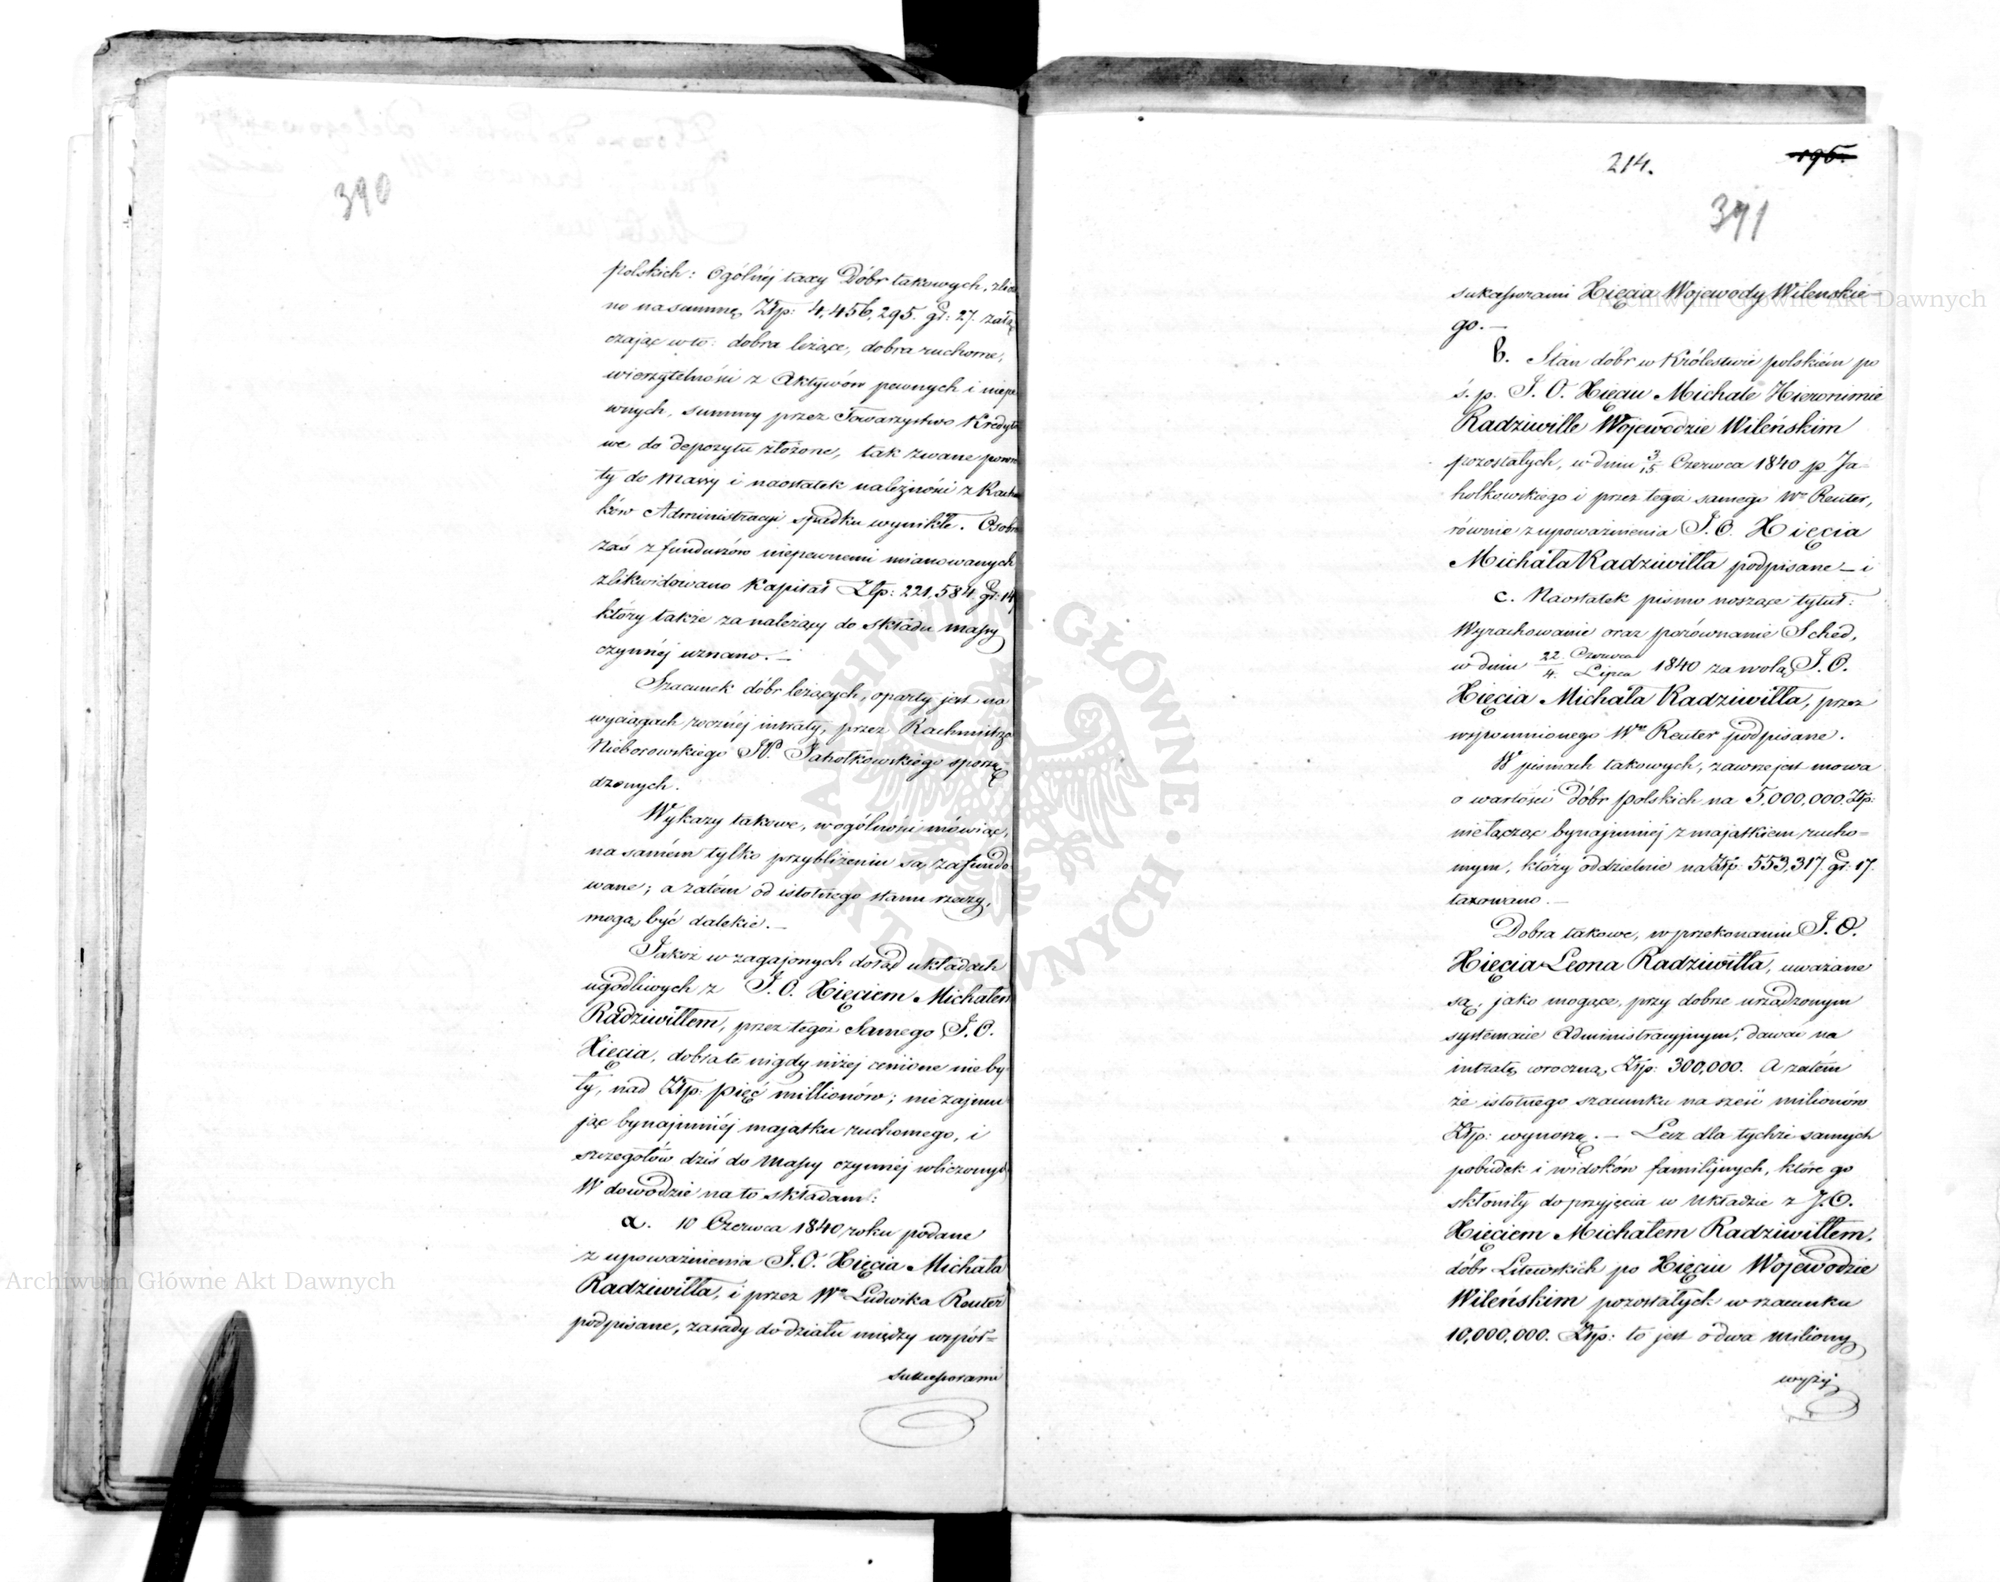 390
polskich: Ogólnéj taxy Dóbr takowych, zliczo
no na summę Złp: 4,456,295. gr: 27. załą
czając w to: dobra leżące, dobra ruchome,
wierzytelności z Aktywów pewnych i niepe
wnych, summy przez Towarzystwo Kredyto
we do depozytu złożone, tak zwane powro
ty do Massy i naostatek należności z Rachun
ków Administracyi spadku wynikłe. Osobno
zaś z funduszów niepewnemi mianowanych
zlikwidowano Kapitał Złp: 221,584. gr: 14
który także za należący do składu massy
czynnéj uznano. —
Szacunek dóbr leżących, oparty jest na
wyciągach rocznéj intraty, przez Rachmistrza
Nieborowskiego JP. Jahołkowskiego sporzą
dzonych.
Wykazy takowe, w ogólności mówiąc,
na samém tylko przybliżeniu są zafundo
wane; a zatém od istotnego stanu rzeczy,
mogą być dalekie. —
Jakoż w zagajonych dotąd układach
ugodliwych z J. O. Xięciem Michałem
Radziwiłłem, przez tegoż Samego J. O.
Xięcia, dobra te nigdy niżej cenione nie by
ły, nad Złp: pięć millionów; nie zajmu
jąc bynajmniéj majątku ruchomego, i
szczegółów dziś do Massy czynnéj wliczonych
W dowodzie na to składam:
a. 10 Czerwca 1840 roku podane
z upoważnienia J. O. Xięcia Michała
Radziwiłła, i przez Wo Ludwika Reuter
podpisane, zasady do działu między współ=
sukcessorami
214.
196.
391
sukcessorami Xięcia Wojewody Wileńskie
go. —
b. Stan dóbr w Królestwie polskiém po
ś. p. J. O. Xięciu Michale Hieronimie
Radziwille Wojewodzie Wileńskim
pozostałych, w dniu 3/15 Czerwca 1840 p. Ja-
hołkowskiego i przez tegoż samego Wo Reuter,
równie z upoważnienia J. O. Xięcia
Michała Radziwiłła podpisane — i
c. Naostatek pismo noszące tytuł:
Wyrachowanie oraz porównanie Sched,
w dniu 22 Czerwca/4. Lipca 1840 za wolą J. O.
Xięcia Michała Radziwiłła, przez
wspomnionego Wo Reuter podpisane.
W pismach takowych, zawsze jest mowa
o wartości Dóbr polskich na 5,000,000. Złp:
nie łącząc bynajmniej z majątkiem rucho=
mym, który oddzielnie na Złp: 553,317 gr: 17.
taxowano. —
Dobra takowe, w przekonaniu J. O.
Xięcia Leona Radziwiłła, uważane
są, jako mogące, przy dobrze urządzonym
systemacie Administracyjnym, dawać na
intratę wroczną, Złp: 300,000. A zatém
że istotnego szacunku na sześć milionów
Złp: wynoszą. — Lecz dla tychże samych
pobudek i widoków familijnych, które go
skłoniły do przyjęcia w Układzie z J. O.
Xięciem Michałem Radziwiłłem,
dóbr Litewskich po Xięciu Wojewodzie
Wileńskim pozostałych w szacunku
10,000,000. Złp: to jest o dwa miliony
wyżéj
Archiwum Główne Akt Dawnych
Archiwum Główne Akt Dawnych
ARCHIWUM GŁÓWNE · AKT DAWNYCH ·